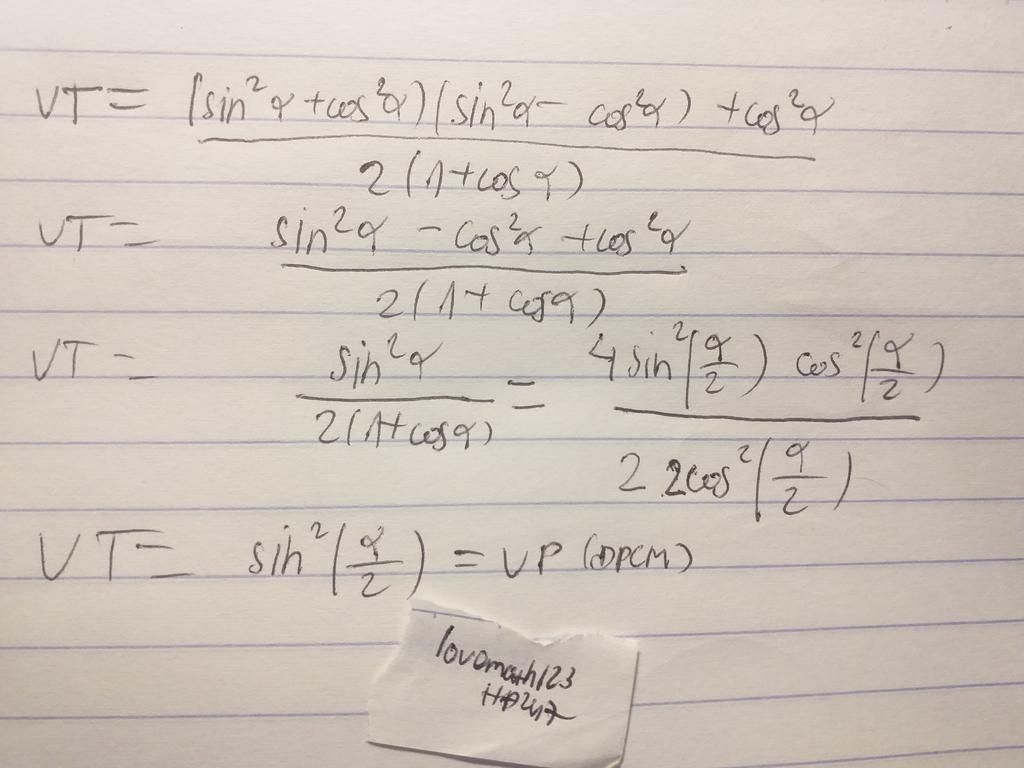 VT = (sin²α + cos²α)(sin²α - cos²α) + cos²α / 2(1+cosα)
VT = sin²α - cos²α + cos²α / 2(1+cosα)
VT = sin²α / 2(1+cosα) = 4sin²(α/2) cos²(α/2) / 2.2cos²(α/2)
VT = sin²(α/2) = VP (ĐPCM)
lovemath123